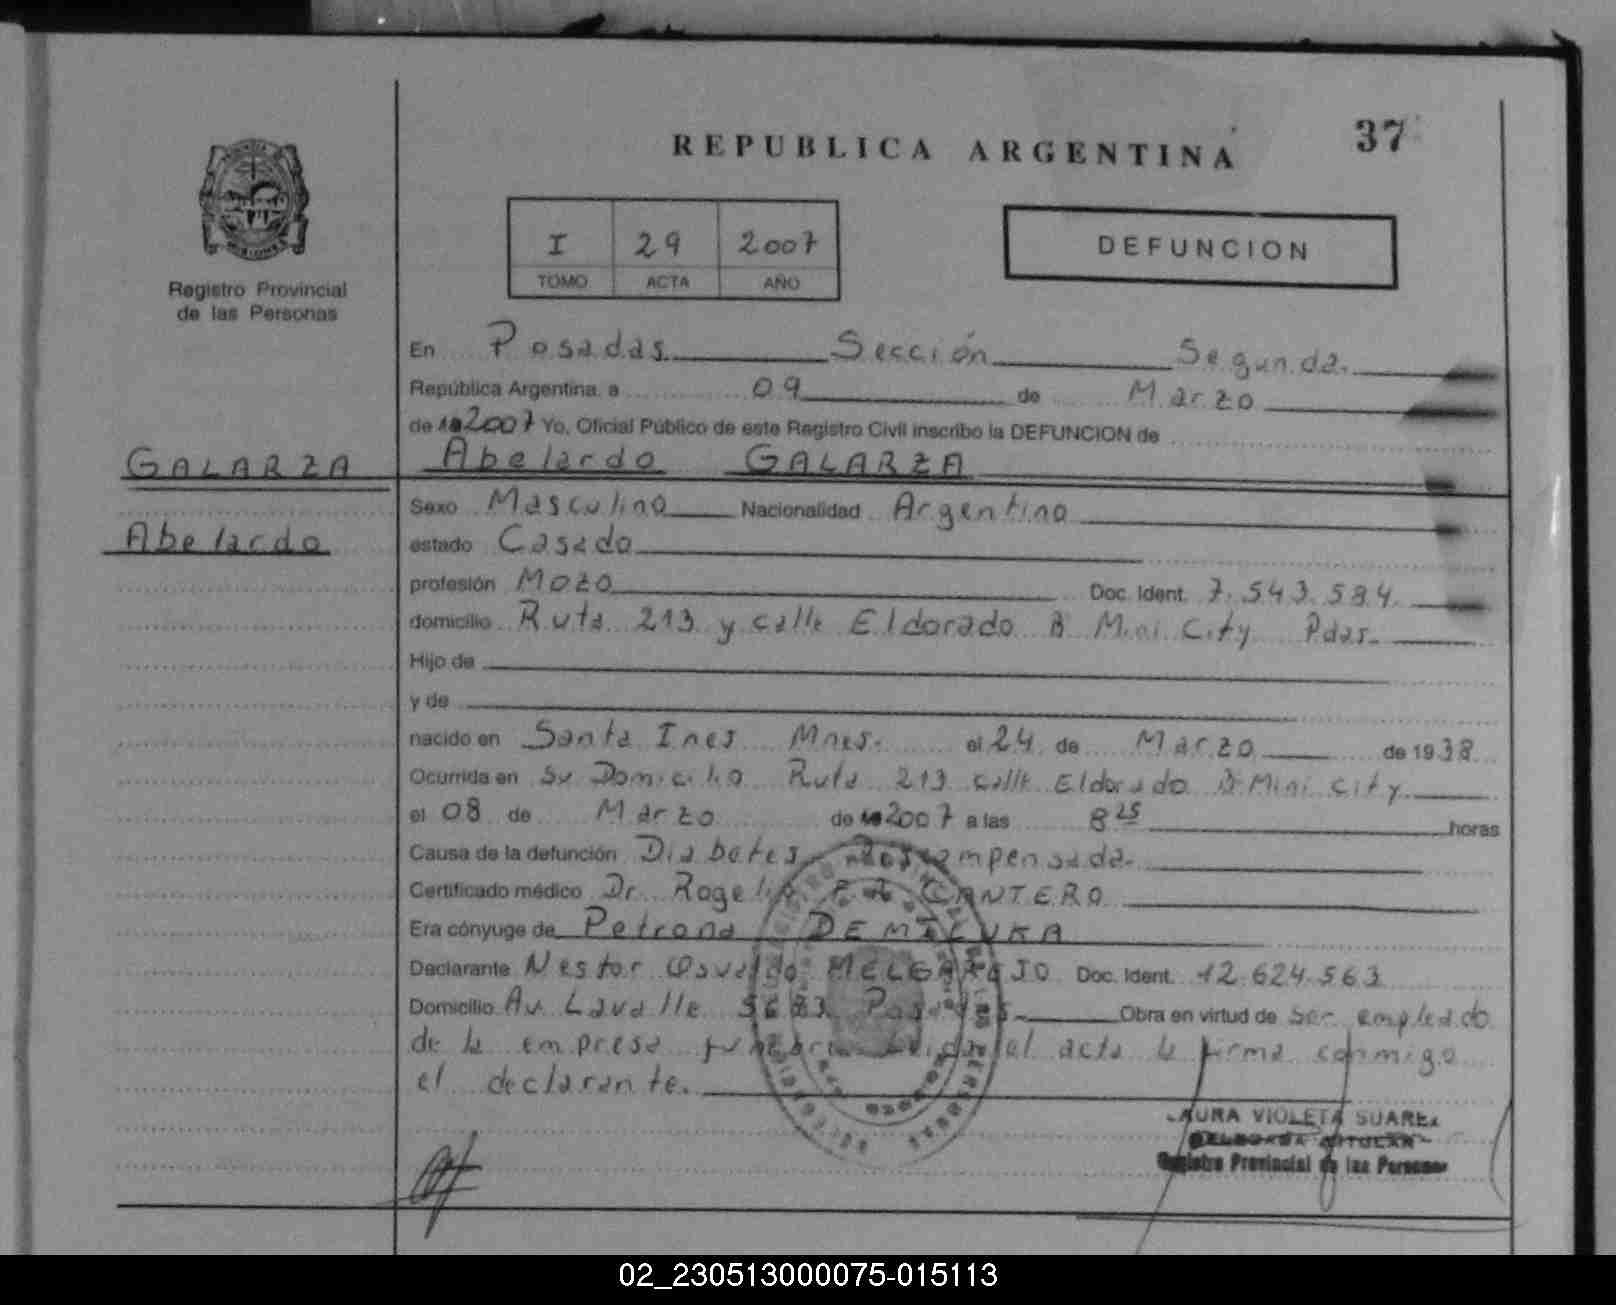 37
REPUBLICA ARGENTINA
I 29 2007
TOMO ACTA AÑO
DEFUNCION
Registro Provincial
de las Personas
En Posadas Sección Segunda.
República Argentina, a 09 de Marzo
de 2007 Yo, Oficial Público de este Registro Civil inscribo la DEFUNCION de
GALARZA Abelardo GALARZA
Sexo Masculino Nacionalidad Argentina
Abelardo
estado Casado
profesión Mozo Doc. Ident. 7.543.584
domicilio Ruta 213 y calle Eldorado B Mini City Pdas.
Hijo de
y de
nacido en Santa Ines Mnes. el 24 de Marzo de 1938
Ocurrida en Su Domicilio Ruta 213 calle Eldorado B Mini City
el 08 de Marzo de 2007 a las 8 25 horas
Causa de la defunción Diabetes Descompensada.
Certificado médico Dr. Rogelio CANTERO
Era cónyuge de Petrona
Declarante Nestor Osvaldo MELGAREJO Doc. Ident. 12.624.563
Domicilio Av. Lavalle Posadas. Obra en virtud de ser empleado
de la empresa acta la firma conmigo
el declarante.
LAURA VIOLETA SUAREZ
Registro Provincial de las Personas
02_230513000075-015113